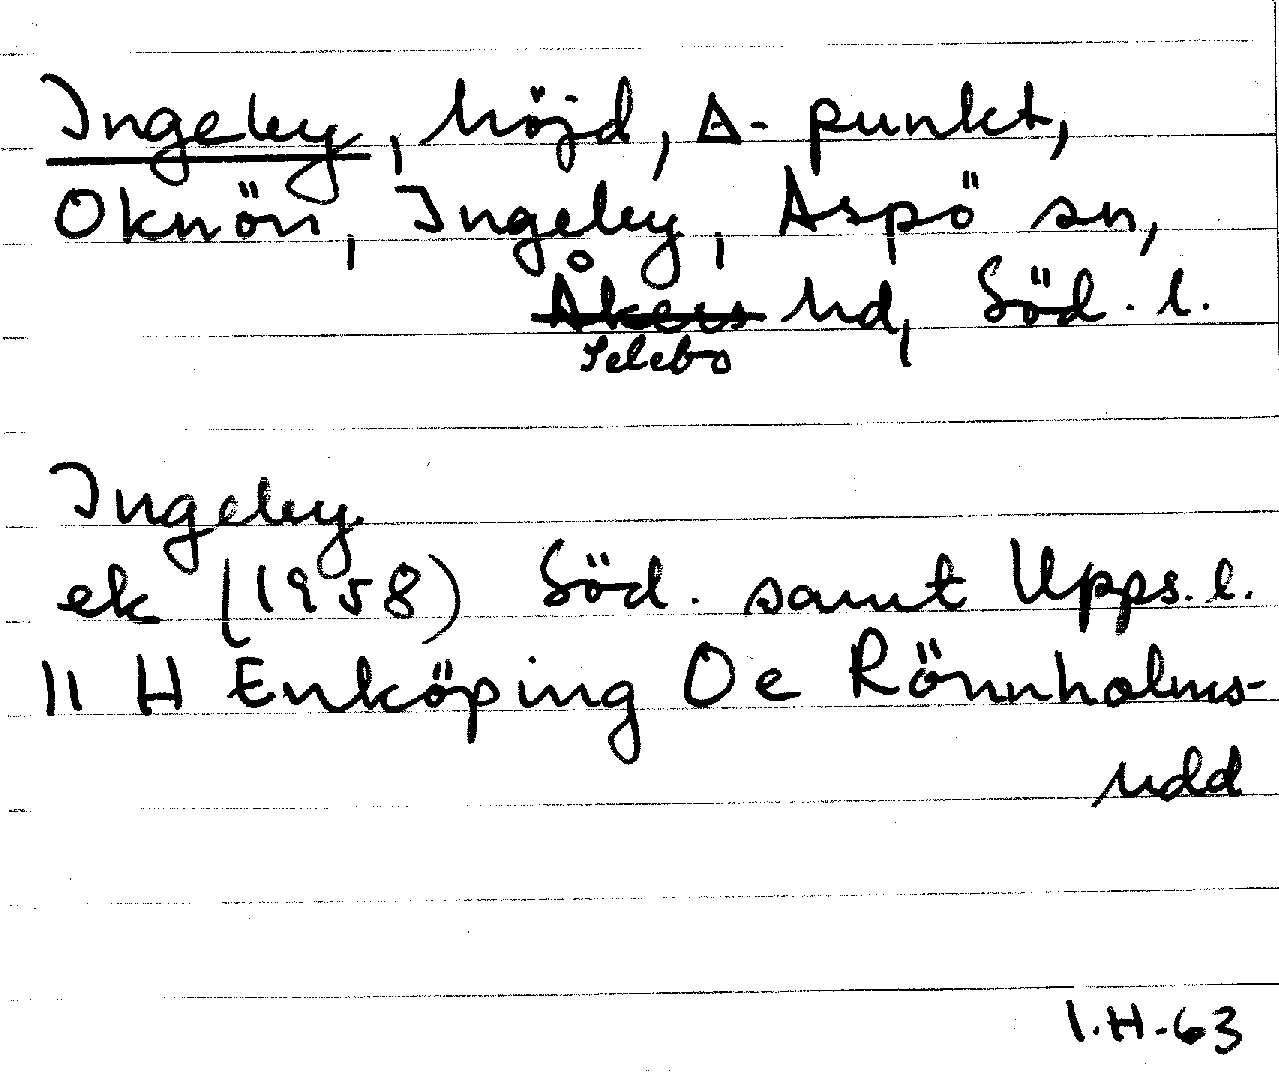 Ingeby, höjd, Δ-punkt,
Oknön, Ingeby, Aspö sn,
Åkers hd, Söd. l.
Selebo
Ingeby
ek (1958) Söd. samt Upps. l.
11 H Enköping 0e Rönnholms-
udd
I.H-63